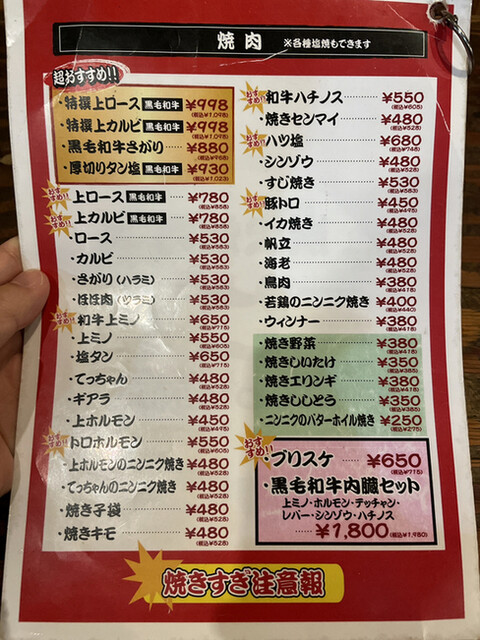 焼肉 ※各種塩焼もできます
超おすすめ!!
・特撰上ロース 黒毛和牛 ¥998 (税込¥1,098)
・特撰上カルビ 黒毛和牛 ¥998 (税込¥1,098)
・黒毛和牛さがり ¥880 (税込¥968)
・厚切りタン塩 黒毛和牛 ¥930 (税込¥1,023)
おすすめ!! ・上ロース 黒毛和牛 ¥780 (税込¥858)
おすすめ!! ・上カルビ 黒毛和牛 ¥780 (税込¥858)
・ロース ¥530 (税込¥583)
・カルビ ¥530 (税込¥583)
・さがり(ハラミ) ¥530 (税込¥583)
・ほほ肉(ツラミ) ¥530 (税込¥583)
おすすめ!! ・和牛上ミノ ¥650 (税込¥715)
・上ミノ ¥550 (税込¥605)
・塩タン ¥650 (税込¥715)
・てっちゃん ¥480 (税込¥528)
・ギアラ ¥480 (税込¥528)
・上ホルモン ¥450 (税込¥495)
おすすめ!! ・トロホルモン ¥550 (税込¥605)
・上ホルモンのニンニク焼き ¥480 (税込¥528)
・てっちゃんのニンニク焼き ¥480 (税込¥528)
・焼き子袋 ¥480 (税込¥528)
・焼きキモ ¥480 (税込¥528)
おすすめ!! ・和牛ハチノス ¥550 (税込¥605)
・焼きセンマイ ¥480 (税込¥528)
おすすめ!! ・ハツ塩 ¥680 (税込¥748)
・シンゾウ ¥480 (税込¥528)
・すじ焼き ¥530 (税込¥583)
おすすめ!! ・豚トロ ¥450 (税込¥495)
・イカ焼き ¥480 (税込¥528)
・帆立 ¥480 (税込¥528)
・海老 ¥480 (税込¥528)
・鳥肉 ¥380 (税込¥418)
・若鶏のニンニク焼き ¥400 (税込¥440)
・ウィンナー ¥380 (税込¥418)
・焼き野菜 ¥380 (税込¥418)
・焼きしいたけ ¥350 (税込¥385)
・焼きエリンギ ¥380 (税込¥418)
・焼きししとう ¥350 (税込¥385)
・ニンニクのバターホイル焼き ¥250 (税込¥275)
おすすめ!! ・ブリスケ ¥650 (税込¥715)
・黒毛和牛内臓セット
上ミノ・ホルモン・テッチャン・
レバー・シンゾウ・ハチノス
¥1,800 (税込¥1,980)
焼きすぎ注意報